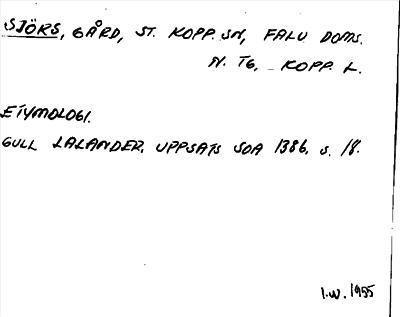 SJÖRS, GÅRD, ST. KOPP. SN, FALU DOMS.
N. TG, KOPP. L.
ETYMOLOGI.
GULL LALANDER, UPPSATS SOA 1386, S. 18.
I.W. 1955